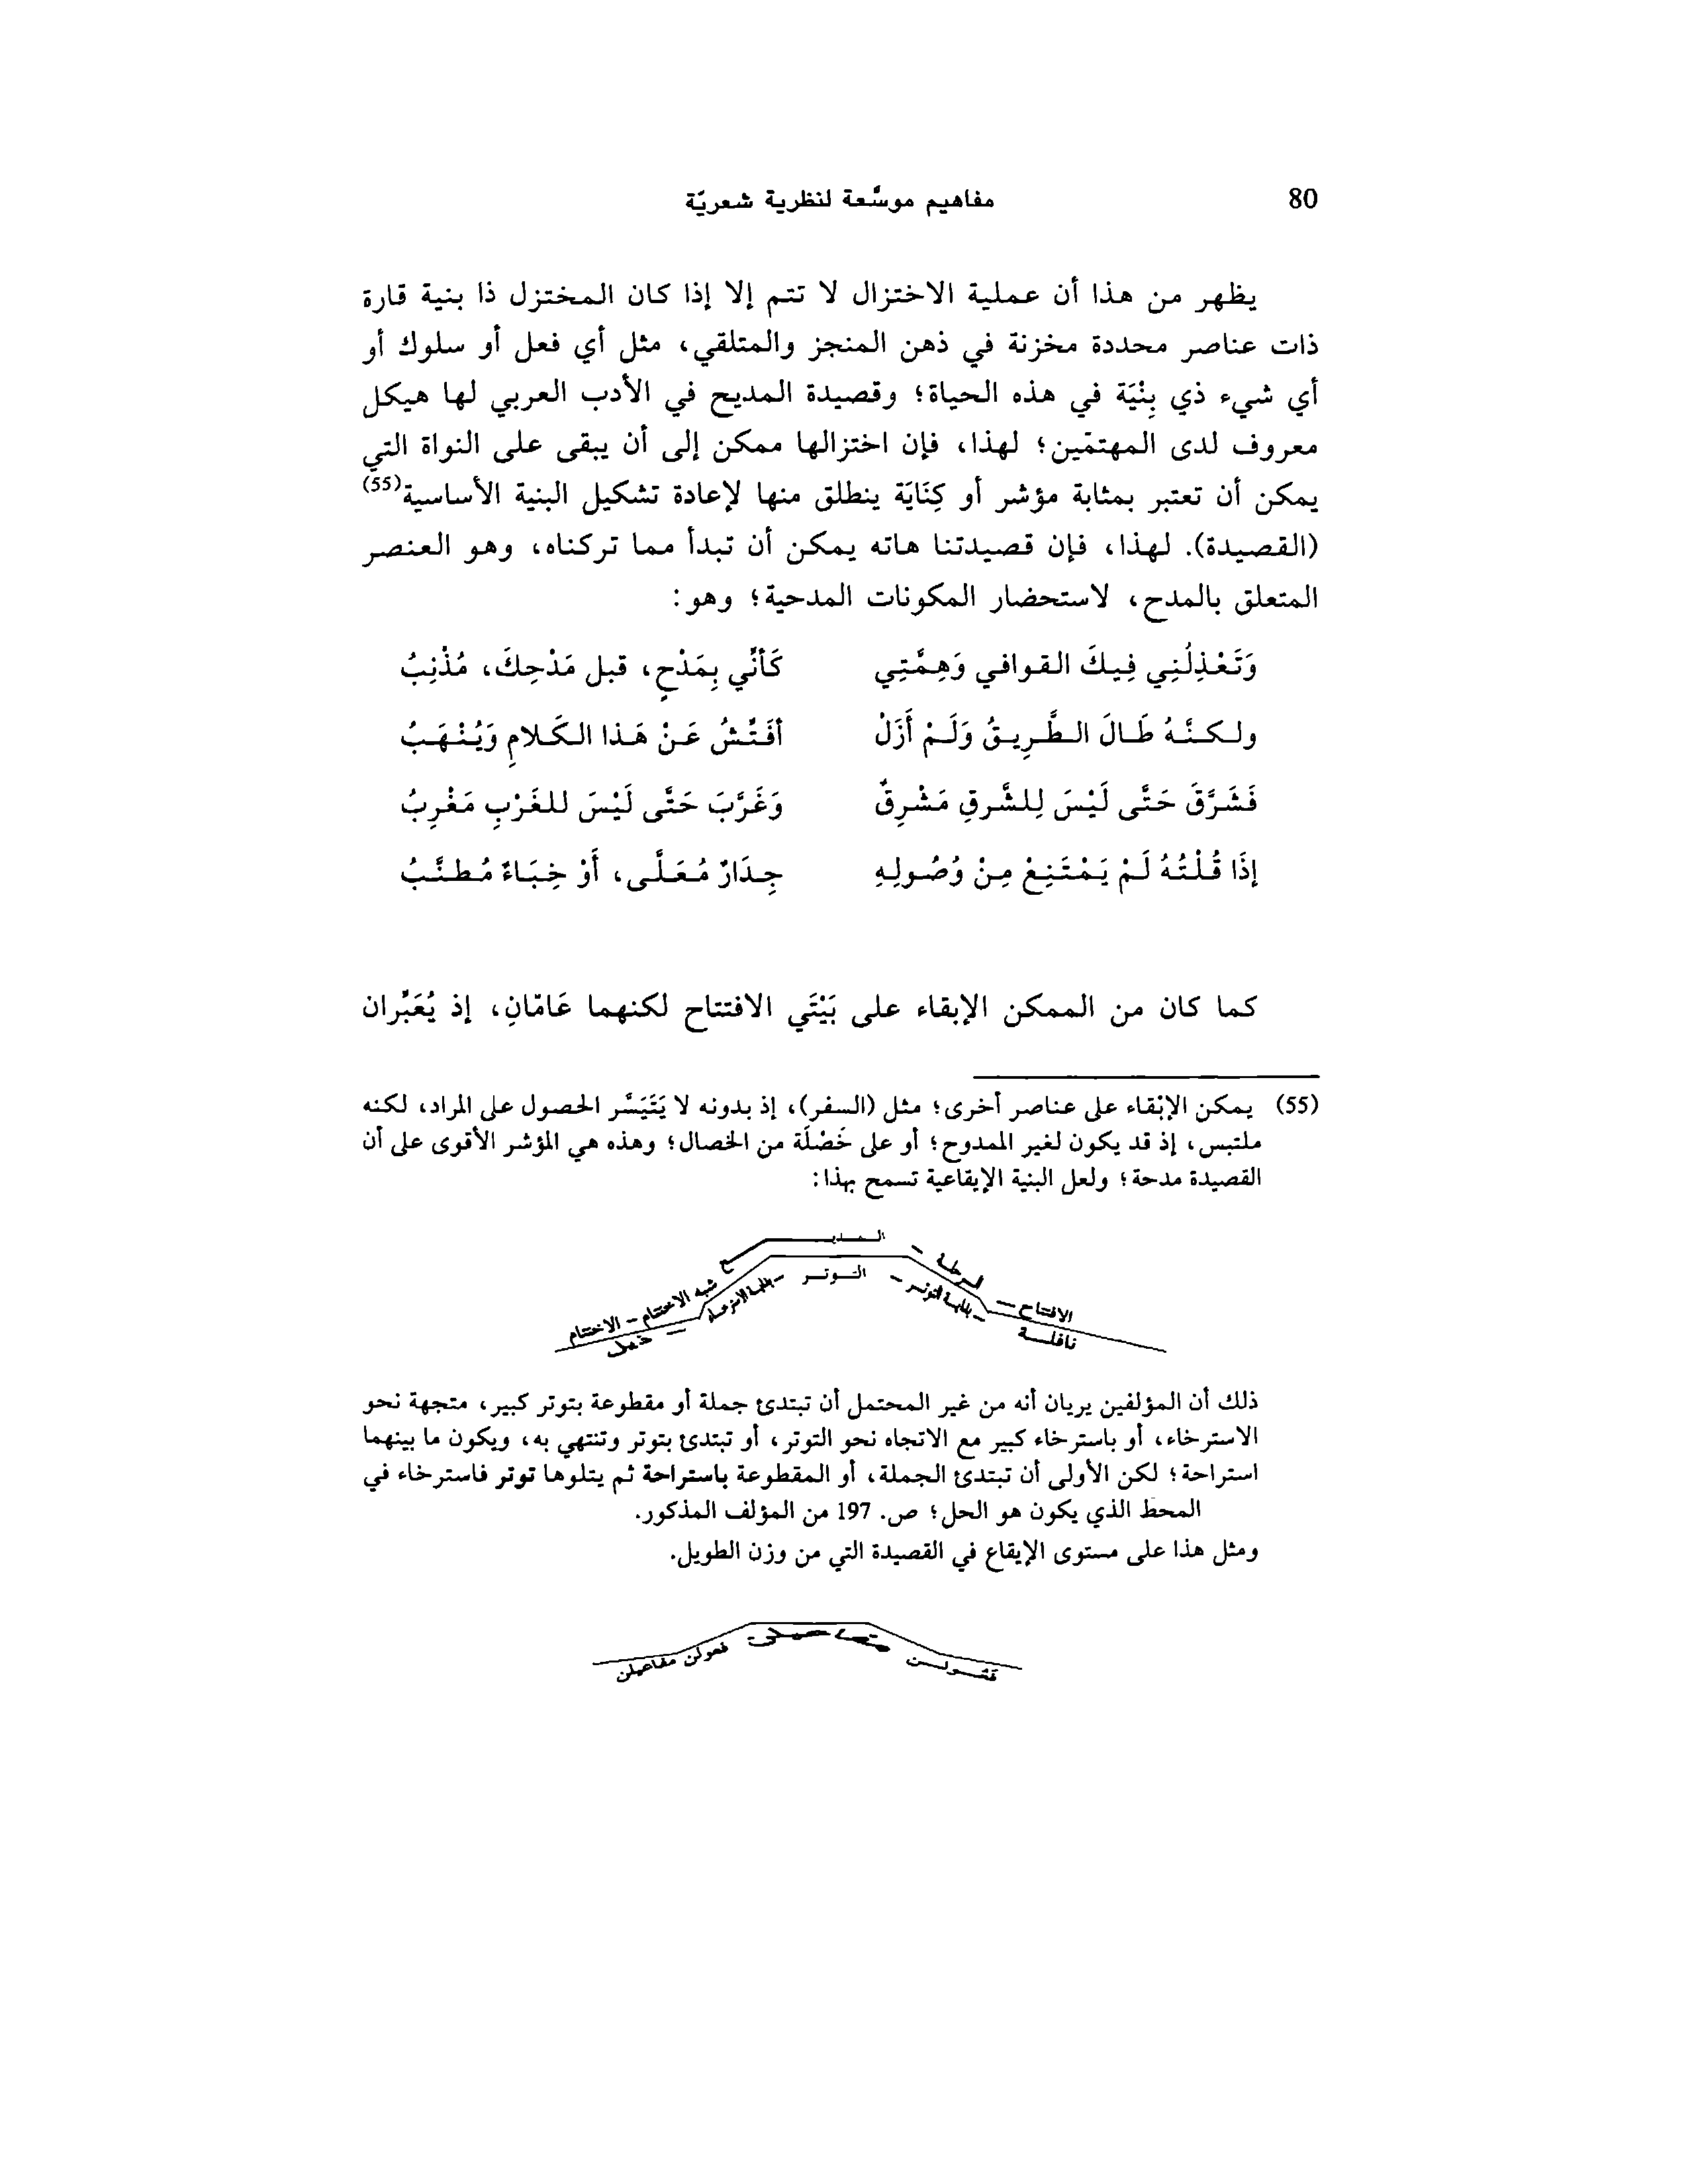 80
مفاهيم موسَّعة لنظرية شعريّة
يظهر من هذا أن عملية الاختزال لا تتم إلا إذا كان المختزل ذا بنية قارة
ذات عناصر محددة مخزنة في ذهن المنجز والمتلقي، مثل أي فعل أو سلوك أو
أي شيء ذي بِنْيَة في هذه الحياة؛ وقصيدة المديح في الأدب العربي لها هيكل
معروف لدى المهتمّين؛ لهذا، فإن اختزالها ممكن إلى أن يبقى على النواة التي
يمكن أن تعتبر بمثابة مؤشر أو كِنَايَة ينطلق منها لإعادة تشكيل البنية الأساسية(55)
(القصيدة). لهذا، فإن قصيدتنا هاته يمكن أن تبدأ مما تركناه، وهو العنصر
المتعلق بالمدح، لاستحضار المكونات المدحية؛ وهو:
وَتَعْذِلُنِي فِيكَ القوافي وَهِمَّتِي كَأنِّي بِمَدْحٍ، قبل مَدْحِكَ، مُذْنِبُ
ولكنَّهُ طَالَ الطَّرِيقُ وَلَمْ أَزَلْ أفَتِّشُ عَنْ هَذا الكَلامِ وَيُنْهَبُ
فَشَرَّقَ حَتَّى لَيْسَ لِلشَّرقِ مَشْرِقٌ وَغَرَّبَ حَتَّى لَيْسَ للغَرْبِ مَغْرِبُ
إذَا قُلْتُهُ لَمْ يَمْتَنِعْ مِنْ وُصُولِهِ جِدَارٌ مُعَلَّى، أَوْ خِبَاءٌ مُطنَّبُ
كما كان من الممكن الإبقاء على بَيْتَي الافتتاح لكنهما عَامّانِ، إذ يُعَبِّران
(55) يمكن الإبْقاء على عناصر أخرى؛ مثل (السفر)، إذ بدونه لا يَتَيَسَّر الحصول على المراد، لكنه
ملتبس، إذ قد يكون لغير الممدوح؛ أو على خَصْلَة من الخصال؛ وهذه هي المؤشر الأقوى على أن
القصيدة مدحة؛ ولعل البنية الإيقاعية تسمح بهذا:
الافتتاح – الرحلة – المديح شبه الاختتام – الاختتام
نافلة – بداية التوتر – التوتر –
ذلك أن المؤلفين يريان أنه من غير المحتمل أن تبتدئ جملة أو مقطوعة بتوتر كبير، متجهة نحو
الاسترخاء، أو باسترخاء كبير مع الاتجاه نحو التوتر، أو تبتدئ بتوتر وتنتهي به، ويكون ما بينهما
استراحة؛ لكن الأولى أن تبتدئ الجملة، أو المقطوعة باستراحة ثم يتلوها توتر فاسترخاء في
المحط الذي يكون هو الحل؛ ص. 197 من المؤلف المذكور.
ومثل هذا على مستوى الإيقاع في القصيدة التي من وزن الطويل.
فعولن مفاعيلن